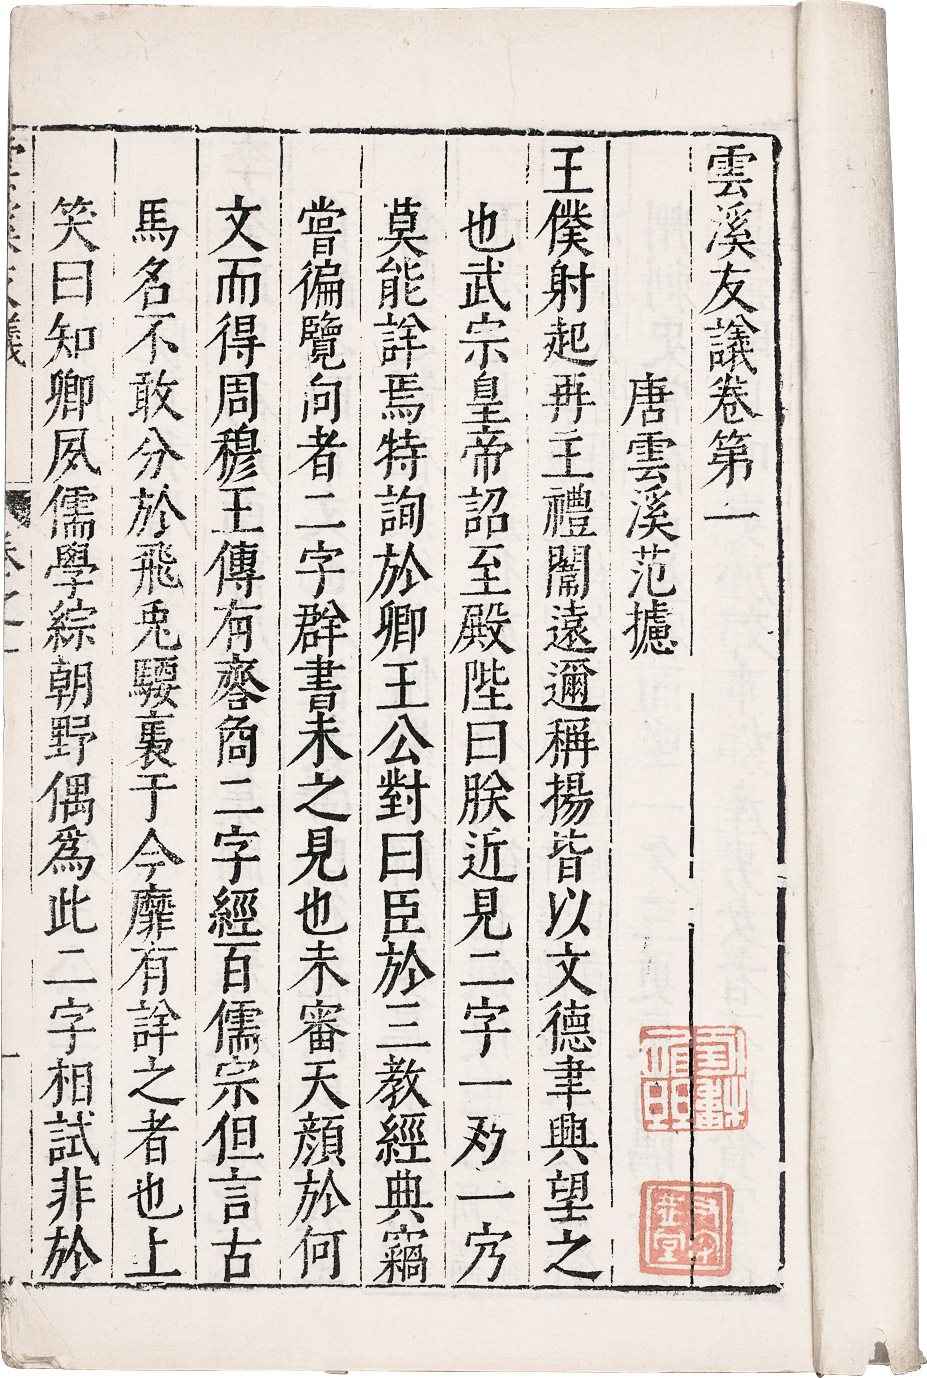 雲溪友議卷第一
唐雲溪范攄
王僕射起再主禮闈遠邇稱揚皆以文德聿興望之
也武宗皇帝詔至殿陛曰朕近見二字一一
莫能詳焉特詢於卿王公對曰臣於三教經典竊
嘗徧覽向者二字群書未之見也未審天顏於何
文而得周穆王傳有二字經百儒宗但言古
馬名不敢分於飛兎騕褭于今靡有詳之者也上
笑曰知卿夙儒學綜朝野偶爲此二字相試非於
雲溪友議
卷之一
一